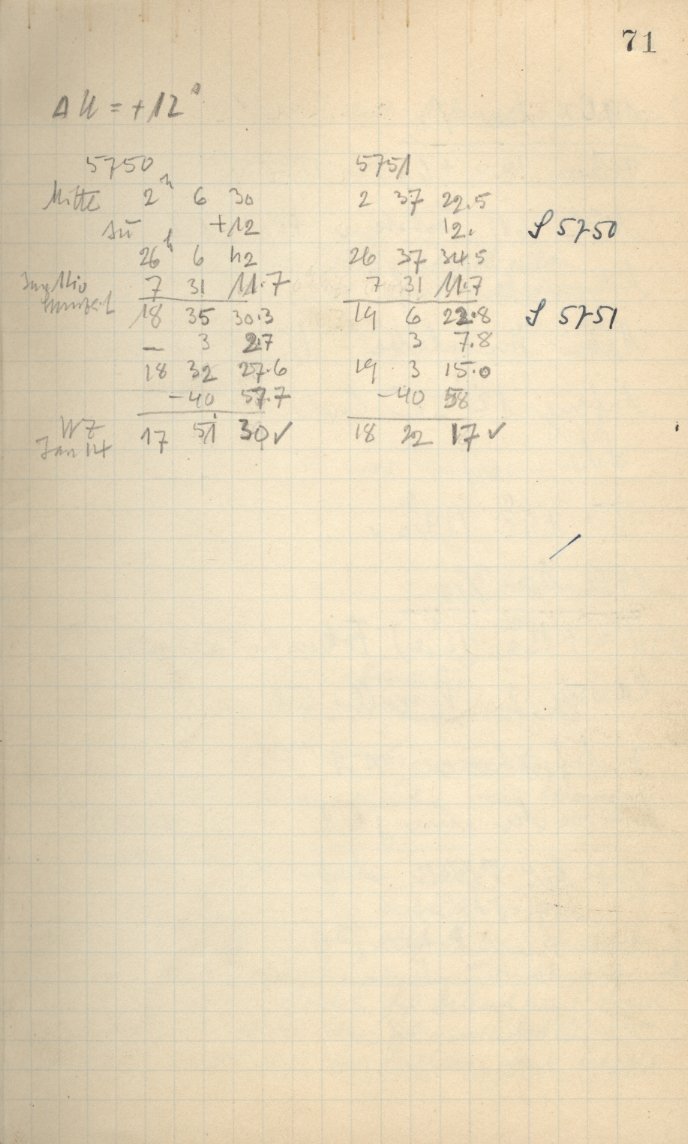 71
Δu = +12ˢ
5750 5751
Mitte 2ʰ 6 30 2 37 22.5
Δu +12 12. S 5750
26ʰ 6 42 26 37 34.5
7 31 11.7 7 31 11.7
18 35 30.3 19 6 22.8 S 5751
— 3 2.7 3 7.8
18 32 27.6 19 3 15.0
-40 57.7 -40 58
WZ 17 51 30✓ 18 22 17✓
Jan 14